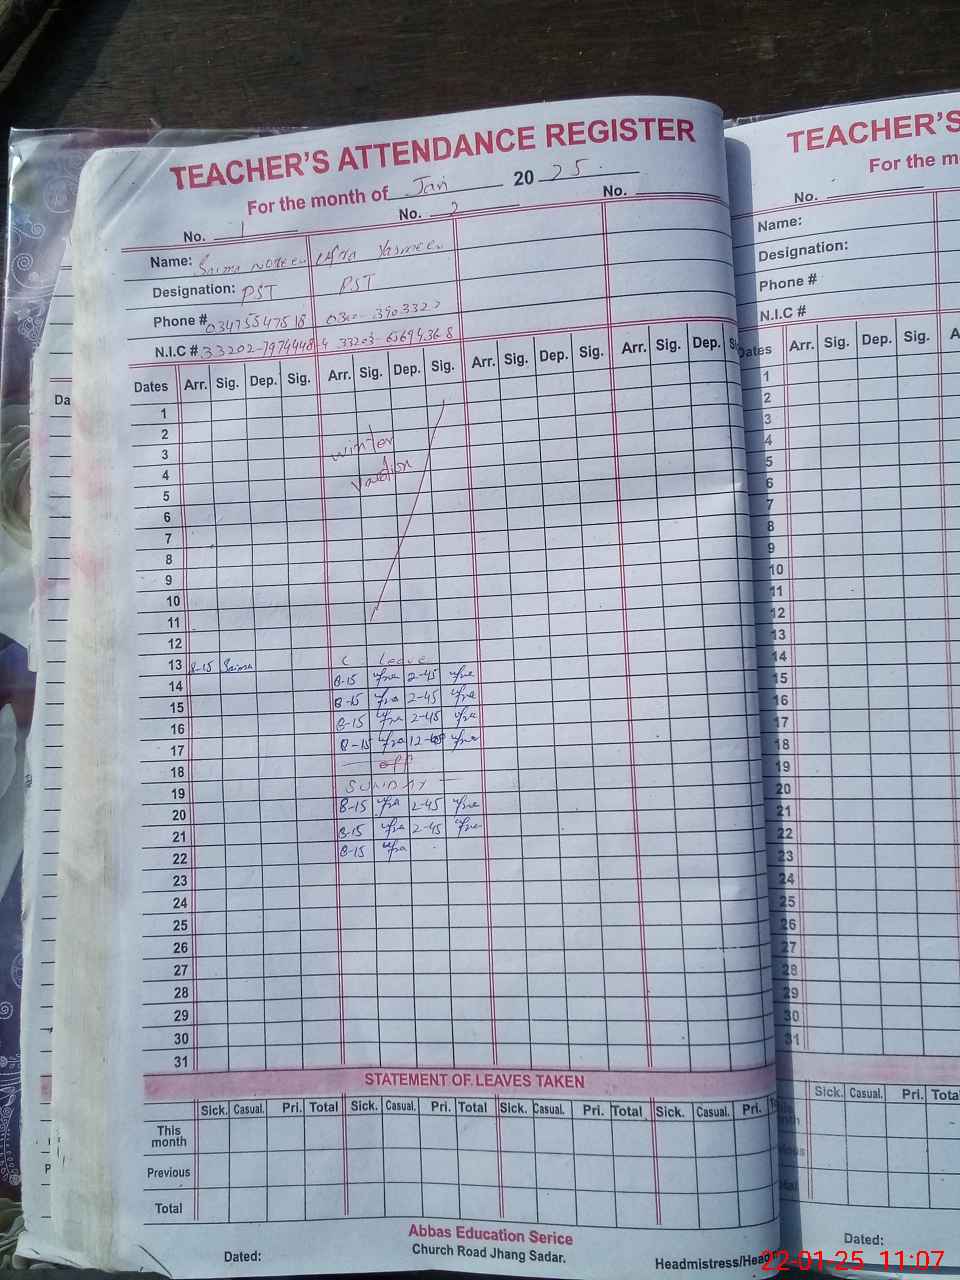 TEACHER'S ATTENDANCE REGISTER
For the month of Jan 20 25.
No. 1 No. 2 No.
Name: Saima Noreen Yasmeen
Designation: PST PST
Phone # 03475547518
N.I.C #
Dates Arr. Sig. Dep. Sig. Arr. Sig. Dep. Sig. Arr. Sig. Dep. Sig. Arr. Sig. Dep.
1
2
3 winter
4
5
6
7
8
9
10
11
12
13 8-15 Saima C Leave
14 8-15 2-45
15 8-15 2-45
16 8-15 2-45
17 8-15
18 off
19 SUNDAY
20 8-15 2-45
21 8-15 2-45
22 8-15
23
24
25
26
27
28
29
30
31
STATEMENT OF LEAVES TAKEN
Sick. Casual. Pri. Total Sick. Casual. Pri. Total Sick. Casual. Pri. Total Sick. Casual. Pri.
This month
Previous
Total
Abbas Education Serice
Church Road Jhang Sadar.
Dated: Headmistress/Head
TEACHER'S
For the m
No.
Name:
Designation:
Phone #
N.I.C #
Dates Arr. Sig. Dep. Sig.
1
2
3
4
5
6
7
8
9
10
11
12
13
14
15
16
17
18
19
20
21
22
23
24
25
26
27
28
29
30
31
Sick. Casual. Pri. Tota
Dated:
22-01-25 11:07